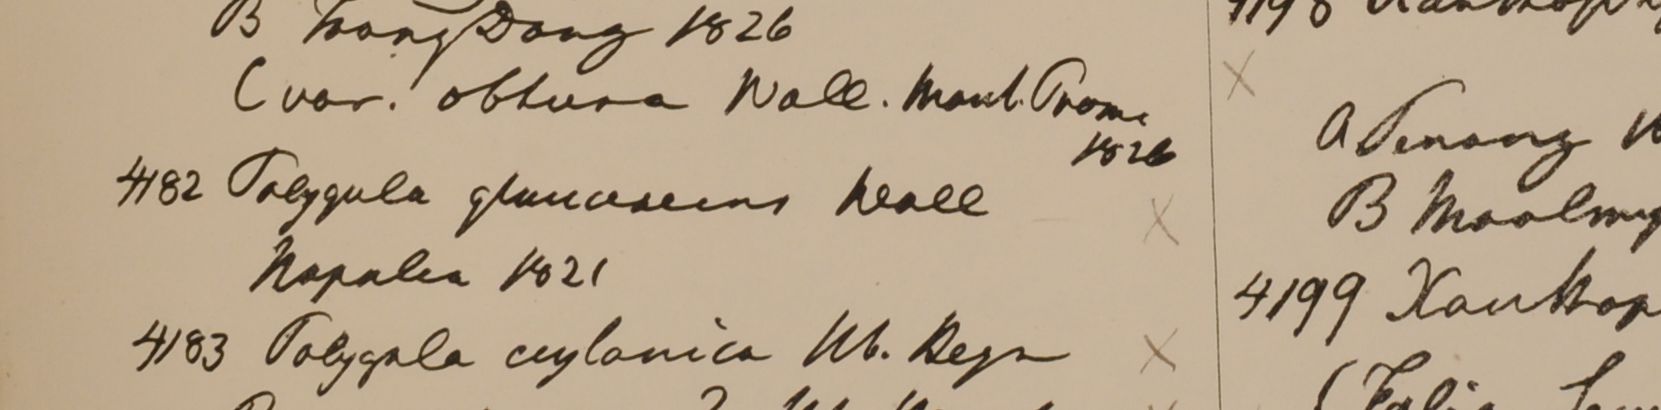 B Trong Dong 1826
C var. obtusa Wall. Mont. Prome
1826
4182 Polygula glaucescens Wall
Napalia 1821
4183 Polygala ceylanica Hb. Heyn
4198
A Penang
B Moolmy
4199 Xanthop